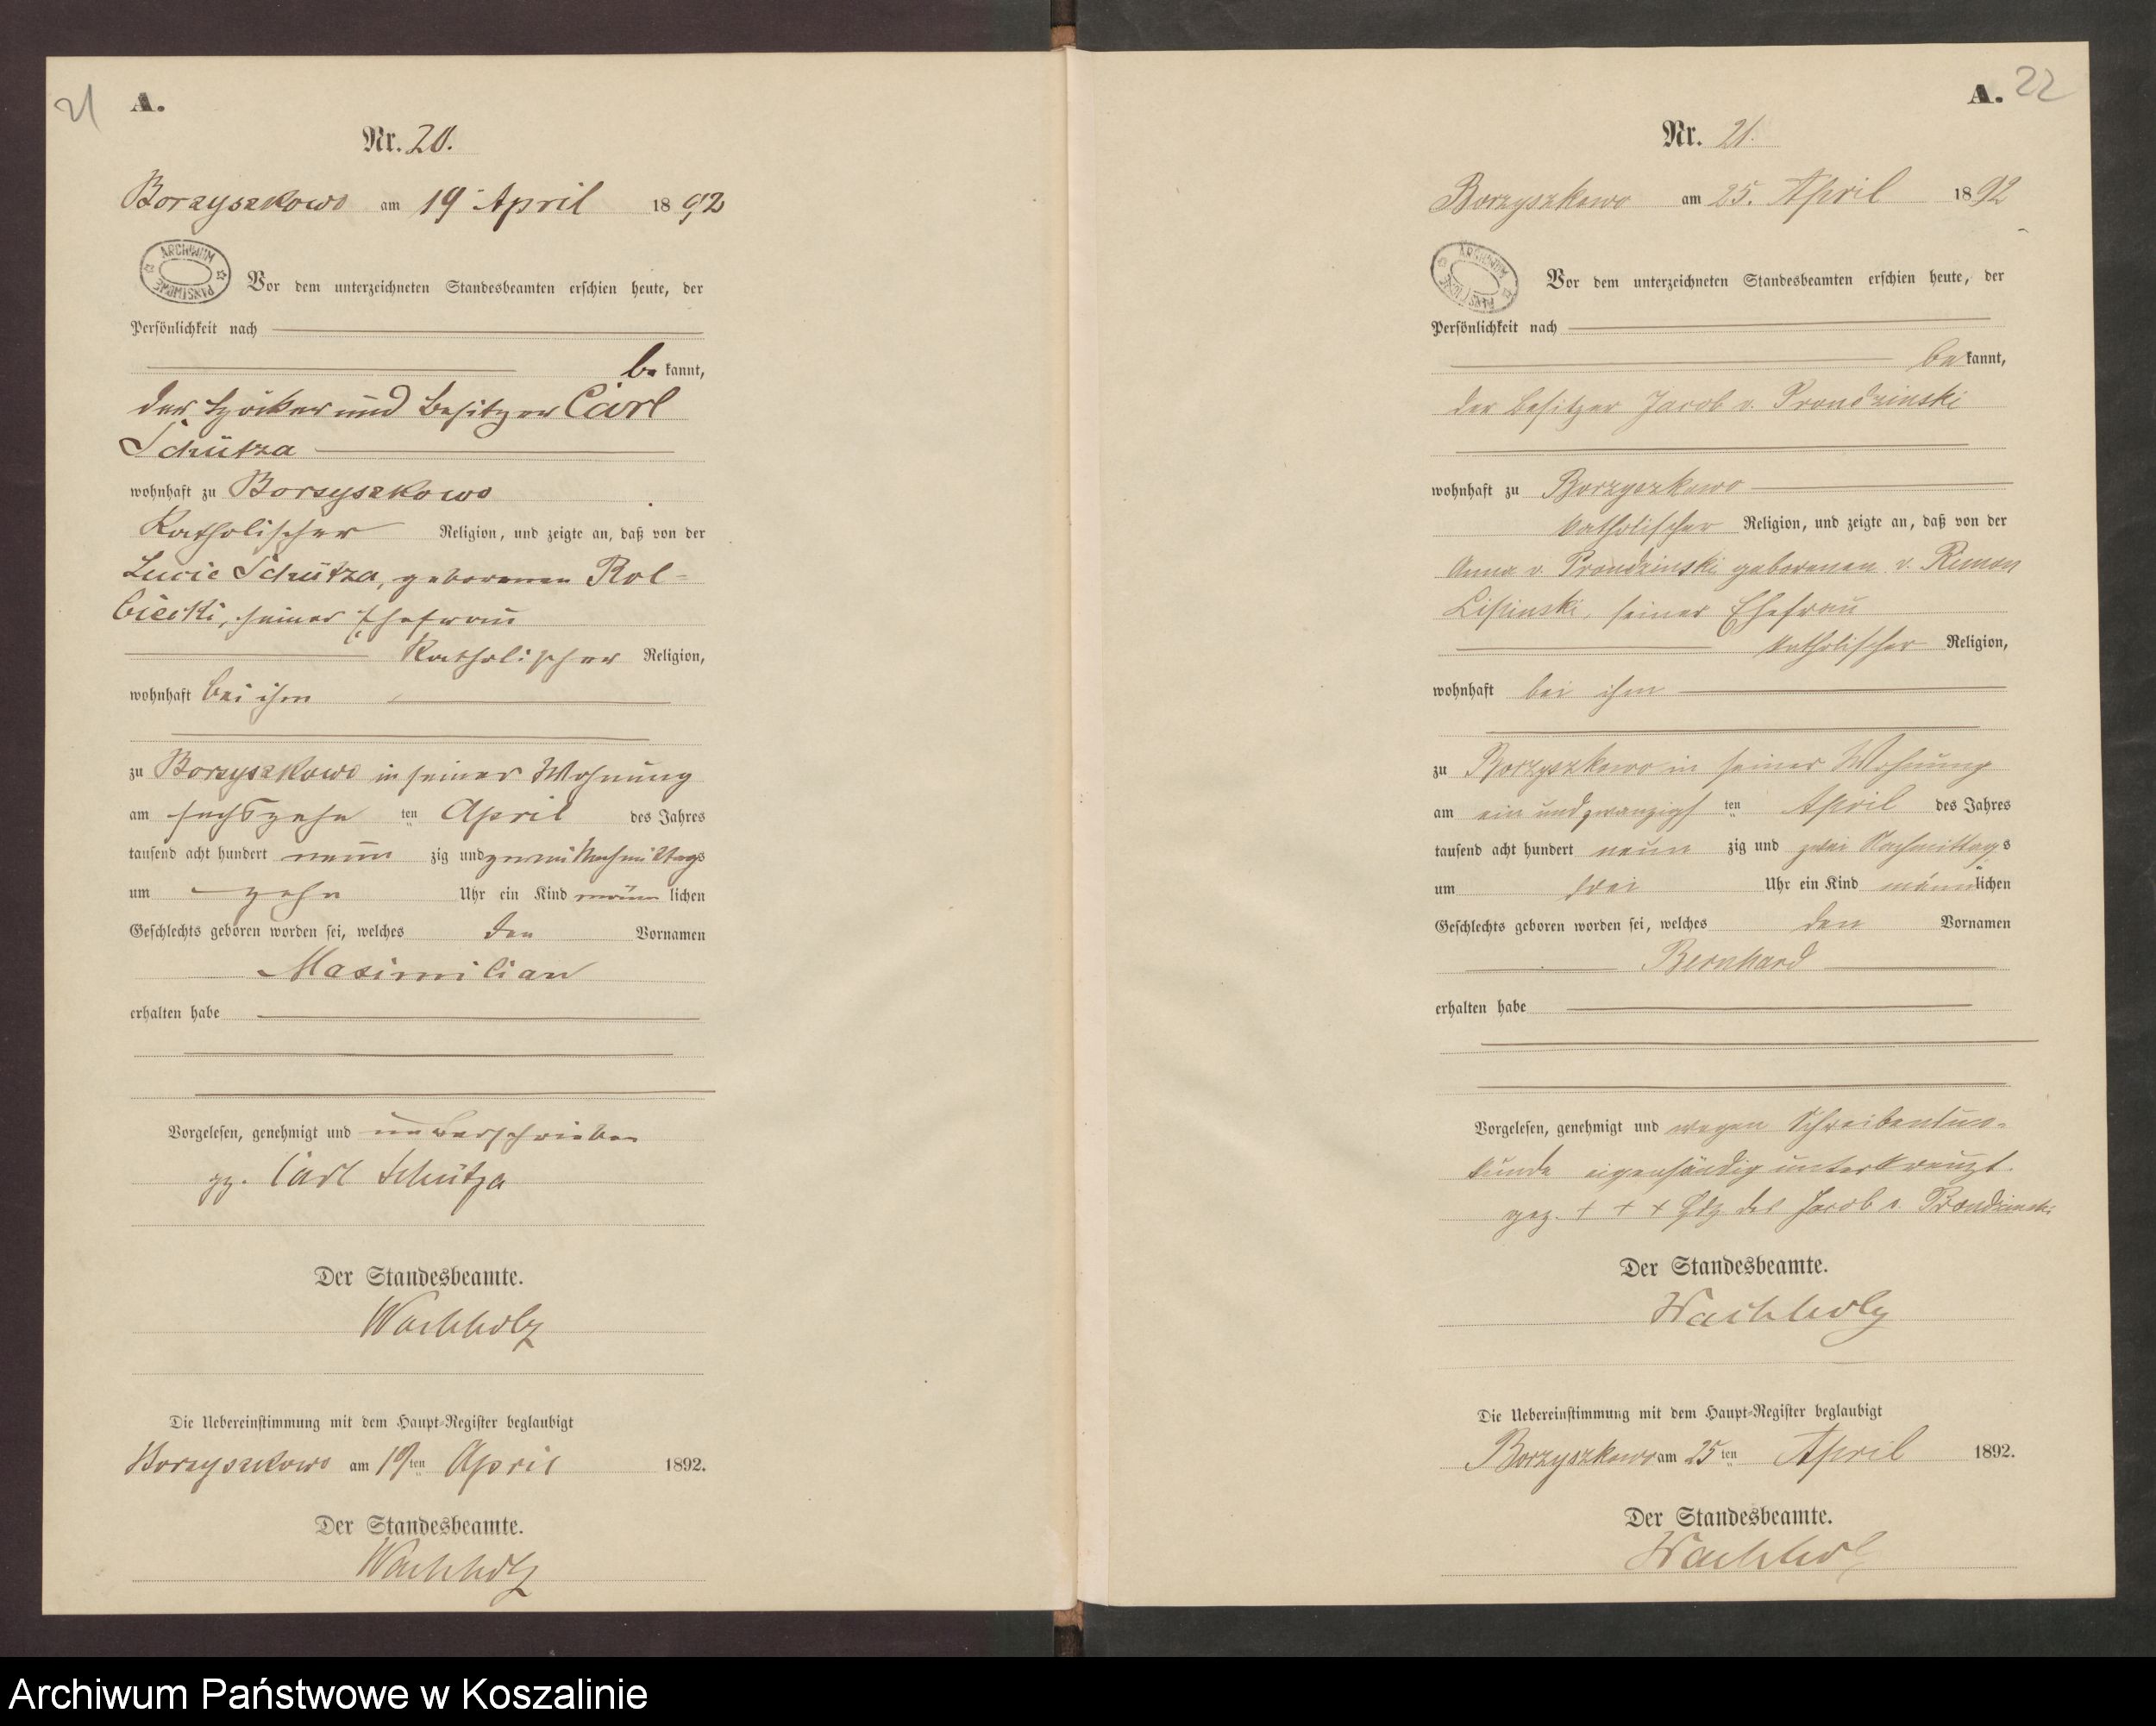 21
A.
Nr. 20.
Borzyszkowo am 19 April 1892
ARCHIWUM PAŃSTWOWE
Vor dem unterzeichneten Standesbeamten erschien heute, der
Persönlichkeit nach
bekannt,
der Höker und Besitzer Carl
Schütza
wohnhaft zu Borzyszkowo
Katholischer Religion, und zeigte an, daß von der
Lucie Schütza, geborenen Rol-
biecki, seiner Ehefrau
Katholischer Religion,
wohnhaft bei ihm
zu Borzyszkowo in seiner Wohnung
am sechszehn ten April des Jahres
tausend acht hundert neun zig und zwei Nachmittags
um zehn Uhr ein Kind männlichen
Geschlechts geboren worden sei, welches den Vornamen
Maximilian
erhalten habe
Vorgelesen, genehmigt und unterschrieben
gz. Carl Schütza
Der Standesbeamte.
Wachholz
Die Uebereinstimmung mit dem Haupt-Register beglaubigt
Borzyszkowo am 19ten April 1892.
Der Standesbeamte.
Wachholz
A. 22
Nr. 21.
Borzyszkowo am 25. April 1892
ARCHIWUM PAŃSTWOWE
Vor dem unterzeichneten Standesbeamten erschien heute, der
Persönlichkeit nach
bekannt,
der Besitzer Jacob v. Prondzinski
wohnhaft zu Borzyszkowo
katholischer Religion, und zeigte an, daß von der
Anna v. Prondzinski geborenen v. Remon
Lipinski, seiner Ehefrau
katholischer Religion,
wohnhaft bei ihm
zu Borzyszkowo in seiner Wohnung
am ein und zwanzigs ten April des Jahres
tausend acht hundert neun zig und zwei Nachmittags
um drei Uhr ein Kind männlichen
Geschlechts geboren worden sei, welches den Vornamen
Bernhard
erhalten habe
Vorgelesen, genehmigt und wegen Schreibensun-
kunde eigenhändig unterkreuzt.
gez. + + + Hdz des Jacob v. Prondzinski
Der Standesbeamte.
Wachholz
Die Uebereinstimmung mit dem Haupt-Register beglaubigt
Borzyszkowo am 25ten April 1892.
Der Standesbeamte.
Wachholz
Archiwum Państwowe w Koszalinie